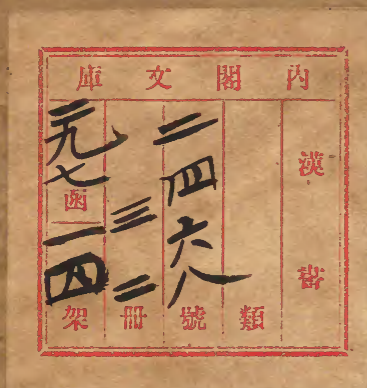 內閣文庫
漢書
類
二四六八號
三二冊
二九七函
一四架